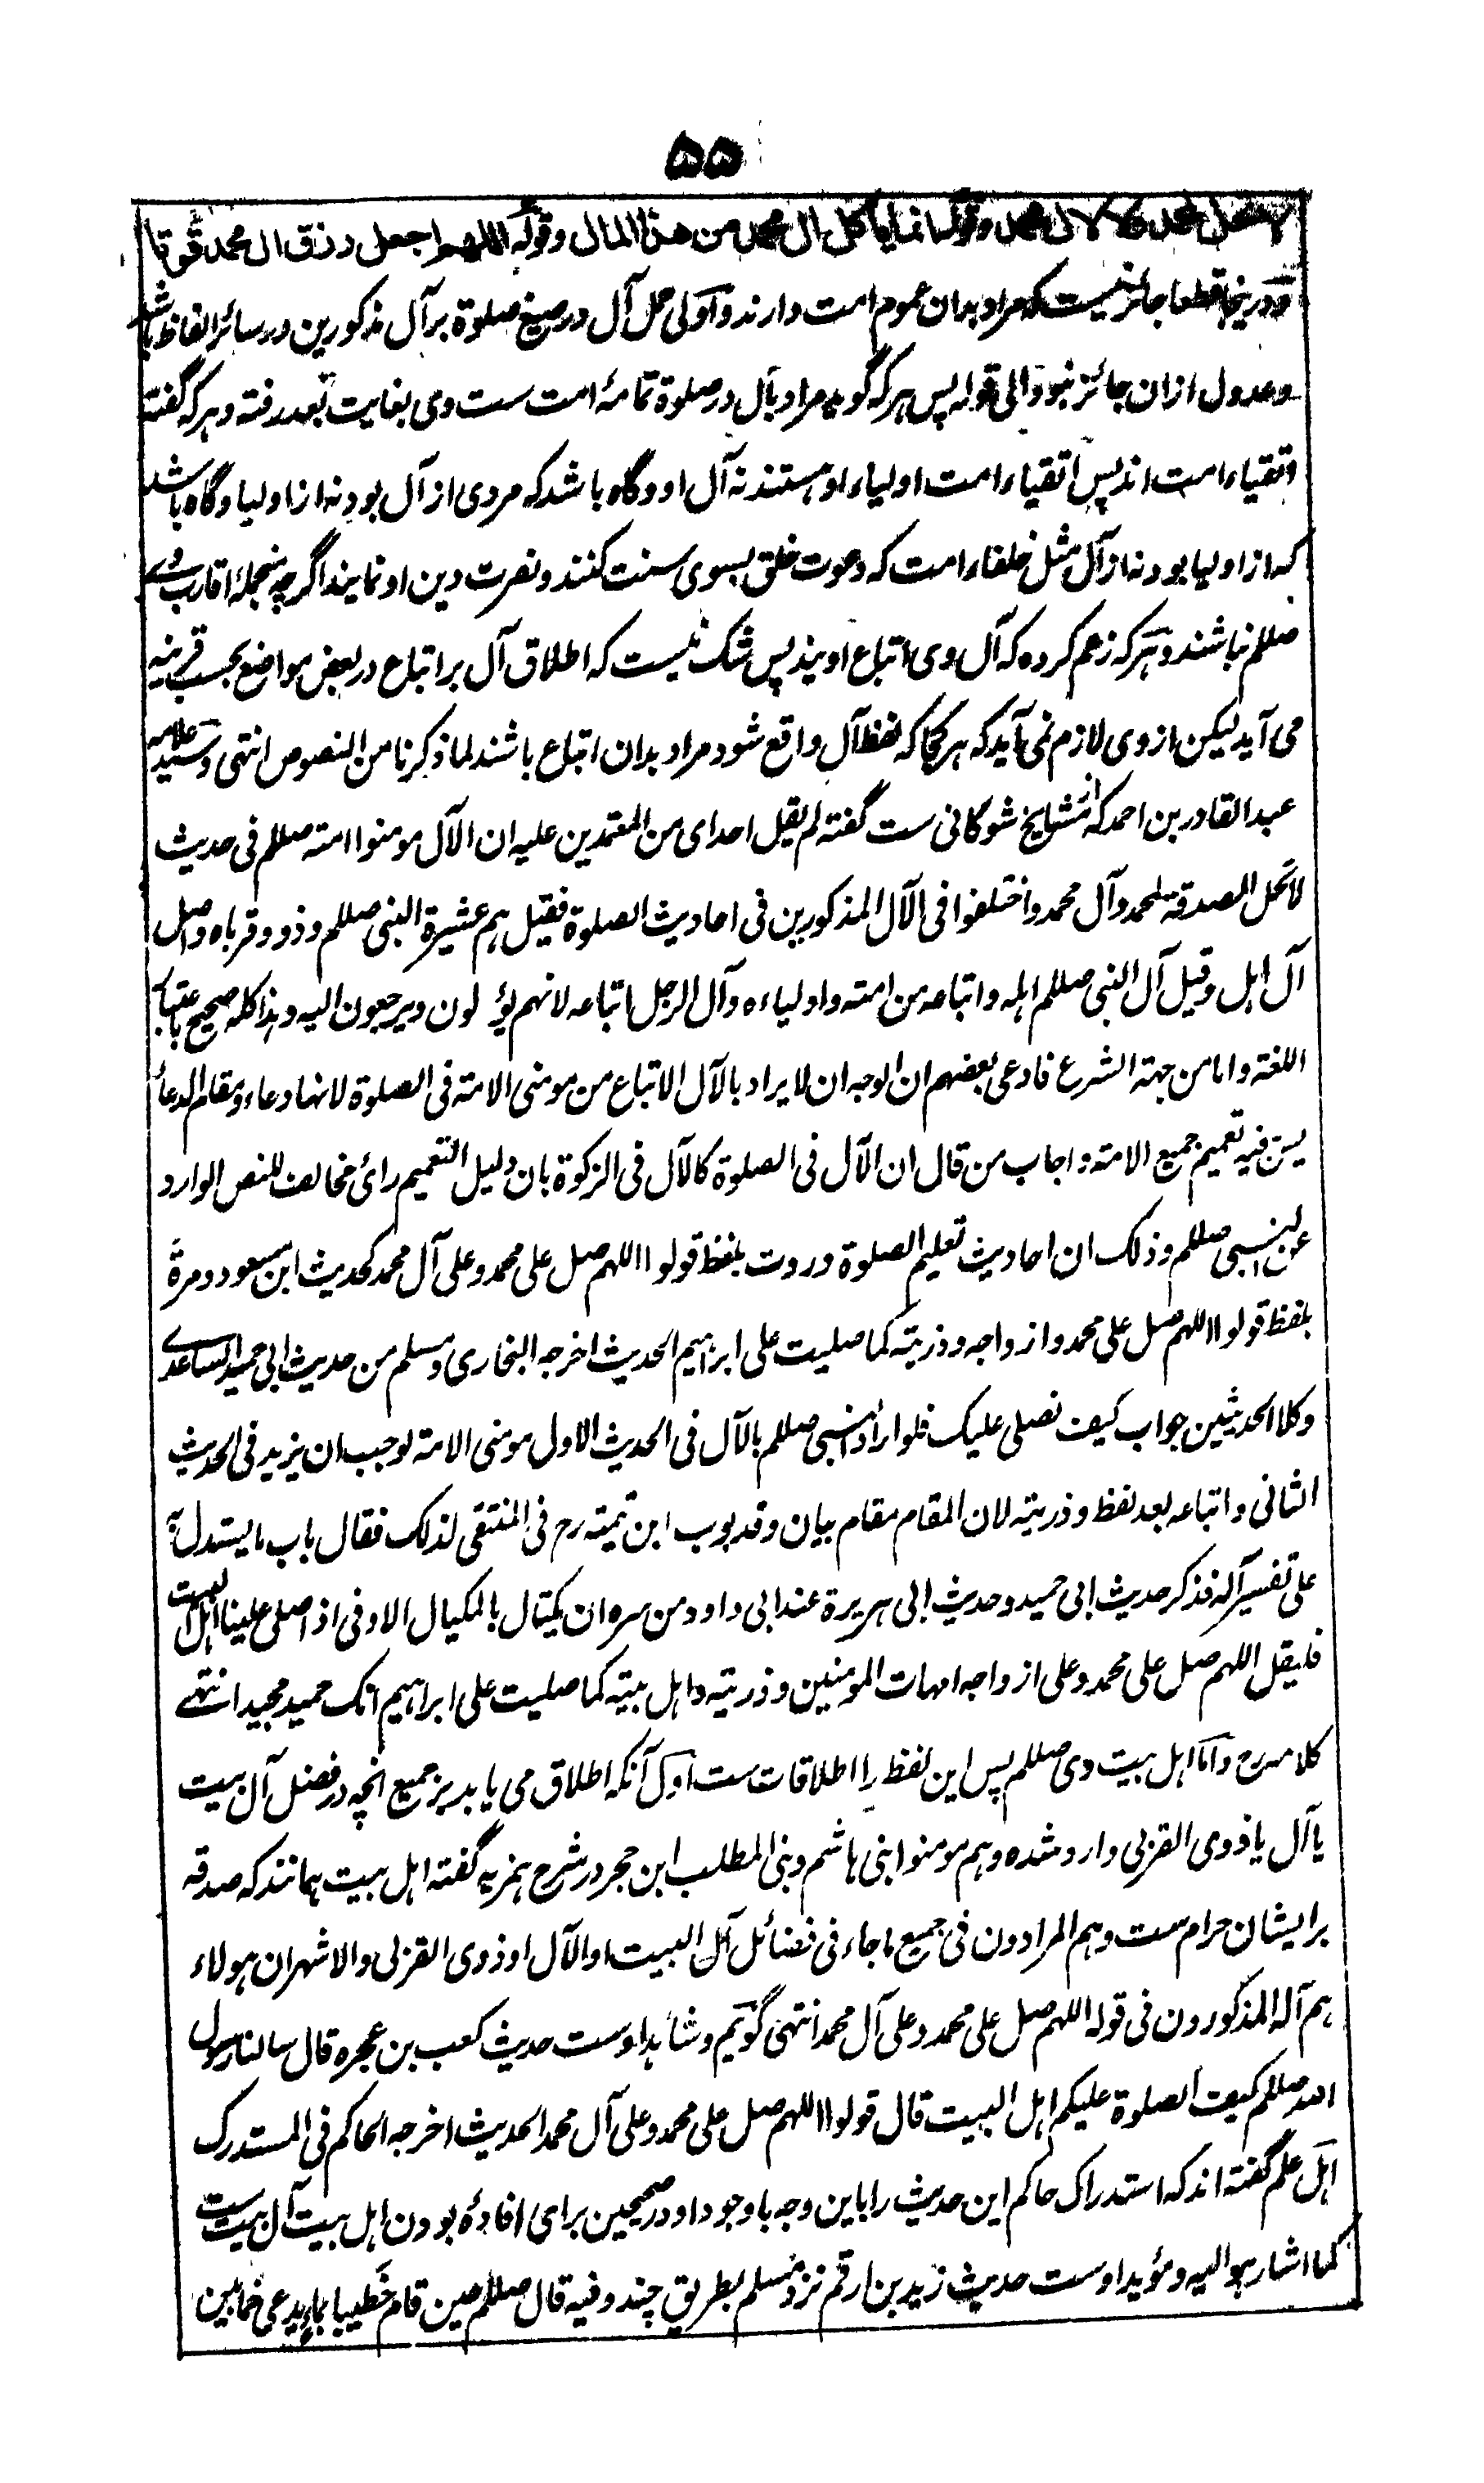 ۵۵
لا تحل لمحمد ولا لآل محمد وقوله انما یاکل ال محمد من هذا المال وقوله اللهم اجعل رزق ال محمد قوتا
و درینجا قطعا جائز نیست که مراد بدان عموم امت دارند و اولی حمل آل در صیغ صلوة بر آل مذکورین در سائر الفاظ باشد
وعدول ازان جائز نبود الی قوله پس هر که گوید مراد بآل در صلوة تمامهٔ امت ست وی بغایت بُعد رفته و هر که گفته
اتقیاء امت اند پس اتقیاء امت اولیاء او هستند نه آل او و گاه باشد که مردی از آل بود نه از اولیا و گاه باشد
که از اولیا بود نه از آل مثل خلفاء امت که دعوت خلق بسوی سنت کنند و نصرت دین او نمایند اگرچه منجملهٔ اقارب وے
صللم نباشند و هر که زعم کرده که آل وی اتباع اویند پس شک نیست که اطلاق آل بر اتباع در بعض مواضع بحسب قرینه
می آید لیکن از وی لازم نمی آید که هر کجا که لفظ آل واقع شود مراد بدان اتباع باشند لما ذکرنا من النصوص انتهی و سید علامه
عبد القادر بن احمد که از مشایخ شوکانی ست گفته لم یقل احد ای من المعتمدین علیه ان الآل مومنوا امته صللم فی حدیث
لا تحل الصدقة لمحمد وآل محمد واختلفوا فی الآل المذکورین فی احادیث الصلوة فقیل هم عشیرة النبی صللم وذوو قرباه واصل
آل اهل وقیل آل النبی صللم اهله واتباعه من امته واولیاءه وآل الرجل اتباعه لانهم یؤلون ویرجعون الیه وهذا کله صحیح باعتبار
اللغة واما من جهة الشرع فادعی بعضهم ان الوجه ان لا یراد بالآل الاتباع من مومنی الامة فی الصلوة لانها دعاء ومقام الدعاء
یسن فیه تعمیم جمیع الامة واجاب من قال ان الآل فی الصلوة کالآل فی الزکوة بان دلیل التعمیم رای مخالف للنص الوارد
عن النبی صللم وذلک ان احادیث تعلیم الصلوة وردت بلفظ قولوا اللهم صل علی محمد وعلی آل محمد کحدیث ابن مسعود ومرة
بلفظ قولوا اللهم صل علی محمد وازواجه وذریته کما صلیت علی ابراهیم الحدیث اخرجه البخاری ومسلم من حدیث ابی حمید الساعدے
وکلا الحدیثین جواب کیف نصلی علیک فلو اراد النبی صللم بالآل فی الحدیث الاول مومنی الامة لوجب ان یزید فی الحدیث
الثانی واتباعه بعد لفظ وذریته لان المقام مقام بیان وقد بوب ابن تیمیة رح فی المنتقی لذلک فقال باب ما یستدل به
علی تفسیر آله فذکر حدیث ابی حمید وحدیث ابی هریرة عند ابی داود من سره ان یکتال بالمکیال الاوفی اذا صلی علینا اهل البیت
فلیقل اللهم صل علی محمد وعلی ازواجه امهات المومنین وذریته واهل بیته کما صلیت علی ابراهیم انک حمید مجید انتهے
کلامه رح و اما اهل بیت وی صللم پس این لفظ را اطلاقات ست اول آنکه اطلاق می یابد بر جمیع انچه در فضل آل بیت
یا آل یا ذوی القربی وارد شده وهم مومنوا بنی هاشم وبنی المطلب ابن حجر در شرح همزیه گفته اهل بیت همانند که صدقه
بر ایشان حرام ست وهم المرادون فی جمیع ما جاء فی فضائل آل البیت او الآل او ذوی القربی والاشهر ان هولاء
هم آله المذکورون فی قوله اللهم صل علی محمد وعلی آل محمد انتهی گویم و شاهد اوست حدیث کعب بن عجره قال سالنا رسول
الله صللم کیف الصلوة علیکم اهل البیت قال قولوا اللهم صل علی محمد وعلی آل محمد الحدیث اخرجه الحاکم فی المستدرک
اهل علم گفته اند که استدراک حاکم این حدیث را باین وجه باوجود او در صحیحین برای افادهٔ بودن اهل بیت آل بیت ست
کما اشار هو الیه و مؤید اوست حدیث زید بن ارقم نزد مسلم بطریق چند وفیه قال صللم حین قام خطیبا بماء یدعی خما بین